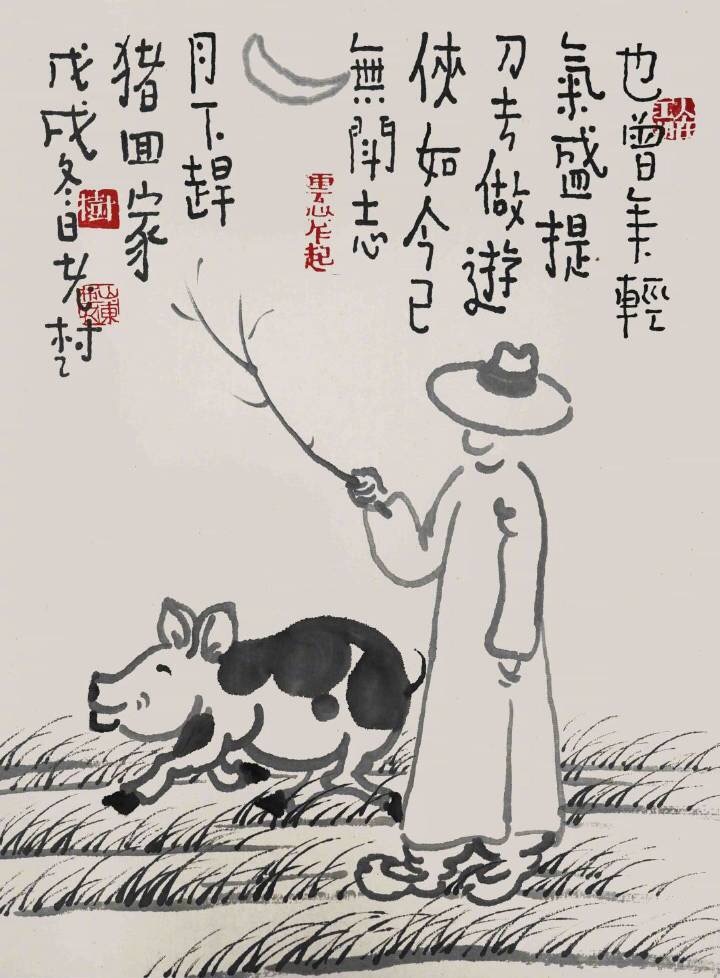 也曾年輕
氣盛提
刀去做遊
俠如今已
無鬥志
月下趕
猪回家
戊戌冬日老树
樹